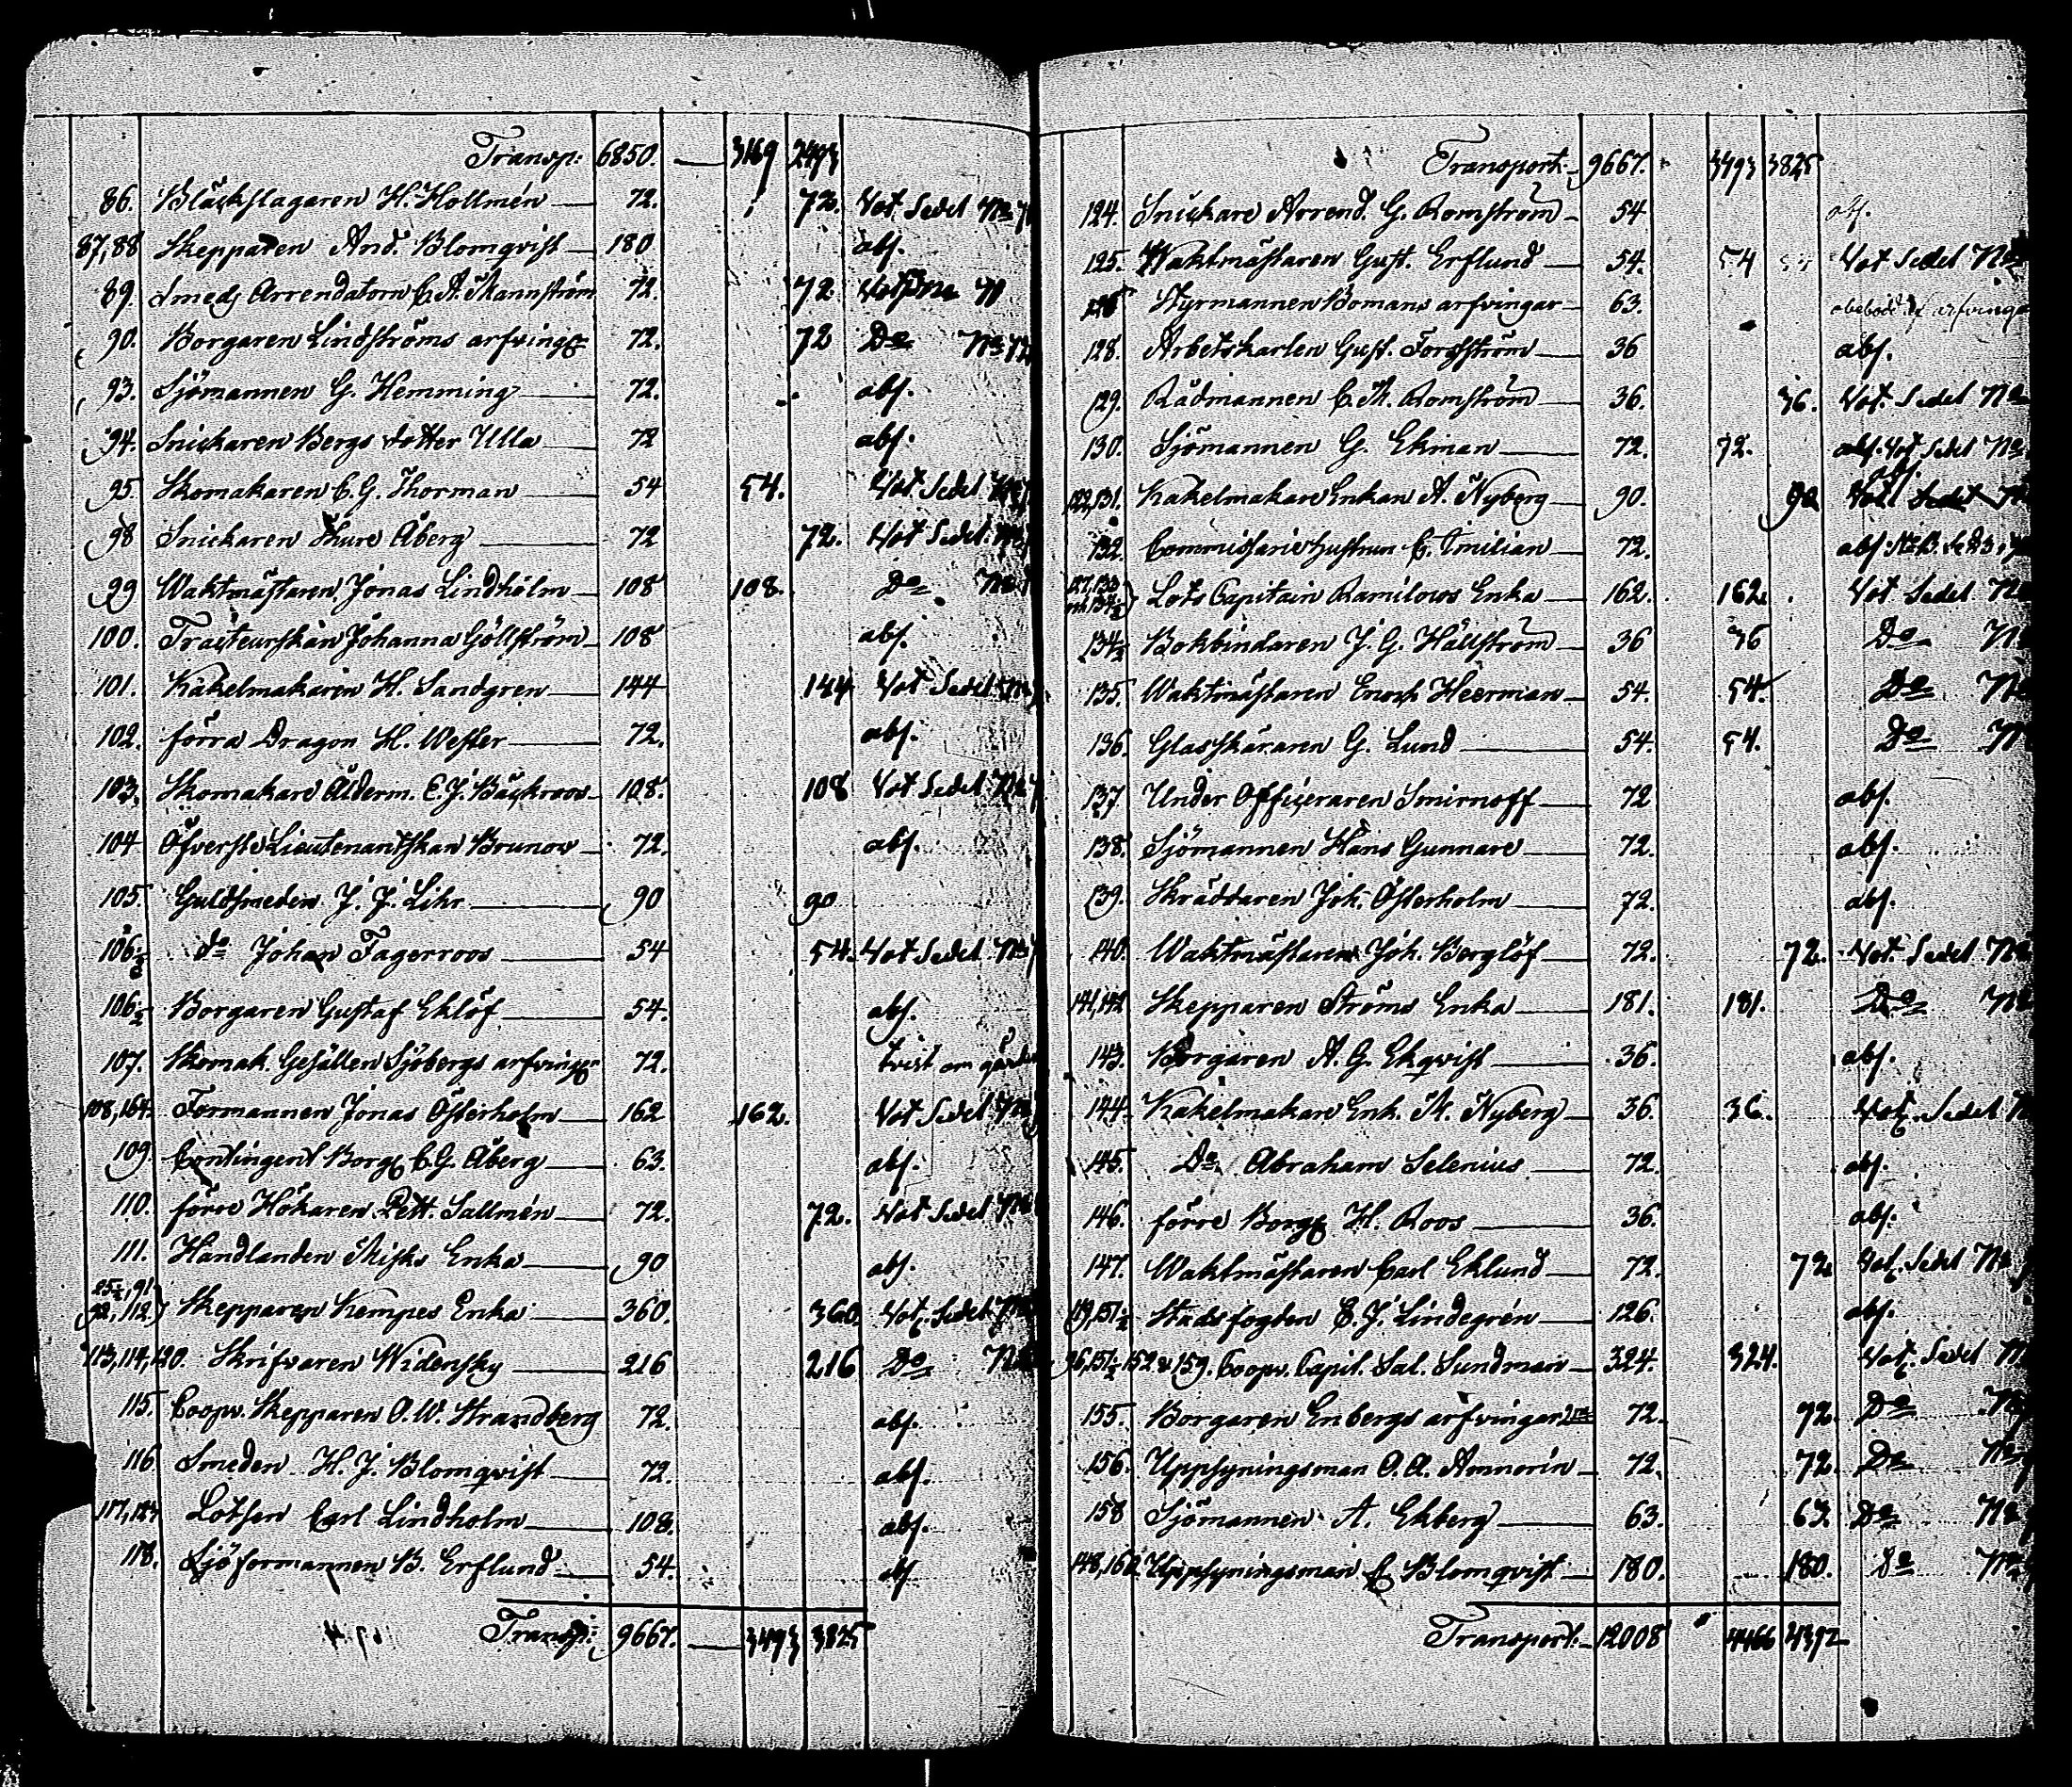 Transp: 6850. — 3169 2493
86. Bläckslagaren H. Hollmén — 72. 72. Vot. Sedel No
87,88 Skepparen And. Blomqvist — 180 abs.
89. Smeds Arrendatorn C. A. Mannström 72. 72
90. Borgaren Lindströms arfving: 72. 72 Do No 72
93. Sjömannen G. Hemming — 72. abs.
94. Snickaren Bergs dotter Ulla — 72 abs.
95 Skomakaren C. G. Thorman — 54 54. Vot Sedel
98 Snickaren Thure Åberg — 72 72. Vot Sedel. No
99 Waktmästaren Jonas Lindholm — 108 108. Do No
100. Tracteurskan Johanna Göllström — 108 abs.
101. Kakelmakaren H. Sandgren — 144 144 Vot Sedel No
102. förra Dragon H. Wester — 72. abs.
103. Skomakare Ålderm. E. J. Bäckroos — 108. 108 Vot Sedel No
104 Öfverste Lieutenantskan Brunow — 72. abs.
105 Guldsmeden J. J. Lihr — 90 90
106 ½ do Johan Fagerroos — 54 54. Vot Sedel No
106 ½ Borgaren Gustaf Eklöf — 54. abs.
107. Skomak. Gesällen Sjöbergs arfving: 72. tvist om
108,164. Formannen Jonas Österholm — 162 162. Vot Sedel No
109 Contingent Borg. C. G. Åberg — 63. abs.
110. förre Hökaren Pett. Sallmén — 72. 72. Vot Sedel No
111. Handlanden Misks Enka — 90 abs.
25½, 91
92, 112. Skepparen Kempes Enka — 360. 360. Vot. Sedel No
113,114,120. Skrifvaren Widensky — 216 216 Do No
115. Coopv. Skepparen O. W. Strandberg 72. abs.
116 Smeden H. J. Blomqvist — 72. abs.
117,123 Lotsen Carl Lindholm — 108. abs.
118. Sjöformannen B. Erflund — 54. abs
Transp: 9667. — 3493 3825
Transport: 9667. 3493 3825
124. Snickare Arrend. G. Romström — 54 abs.
125. Waktmästaren Gust. Erflund — 54. 54 Vot Sedel No
126 Styrmannen Bomans arfvingar — 63. arfvingar
128. Arbetskarlen Gust. Forsström — 36 abs.
129. Rådmannen C. A. Romström — 36. 36. Vot. Sedel No
130. Sjömannen G. Ekman — 72. 72. abs. Vot Sedel No
122,131. Kakelmakare Enkan A. Nyberg — 90. 90 Vot Sedel No
132. Commissarie hustrun C. Emilian — 72. abs.
127,133 Lots Capitain Ramilows Enka — 162. 162. Vot Sedel No
134½ Bokbindaren J. G. Hällström — 36 36 Do No
135. Waktmästaren Enoch Heerman — 54. 54. Do No
136. Glasskäraren G. Lund — 54. 54. Do No
137. Under Officeraren Smirnoff — 72 abs.
138. Sjömannen Hans Gunnare — 72. abs.
139. Skräddaren Joh. Österholm — 72. abs.
140. Waktmästaren Joh. Berglöf — 72. 72. Vot. Sedel No
141,142 Skepparen Ströms Enka — 181. 181. Do No
143. Borgaren A. G. Ekqvist — 36. abs.
144. Kakelmakare Enk. A. Nyberg — 36. 36. Vot. Sedel No
145. Do Abraham Selenius — 72. abs.
146. förre Borg. H. Roos — 36. abs.
147. Waktmästaren Carl Eklund — 72. 72 Vot. Sedel No
119,151½ Stadsfogden C. J. Lindegrén — 126. abs.
96,151½ 152 & 159. Coopv. Capit. Sal. Sundman — 324. 324. Vot. Sedel No
155. Borgaren Enbergs arfvingar — 72. 92. Do No
156. Uppsyningsman O. A. Amnorin — 72. 72. Do No
158 Sjömannen A. Ekberg — 63. 63. Do No
148,160. Uppsyningsman C. Blomqvist — 180. 180. Do No
Transport: 12008 4466 4392